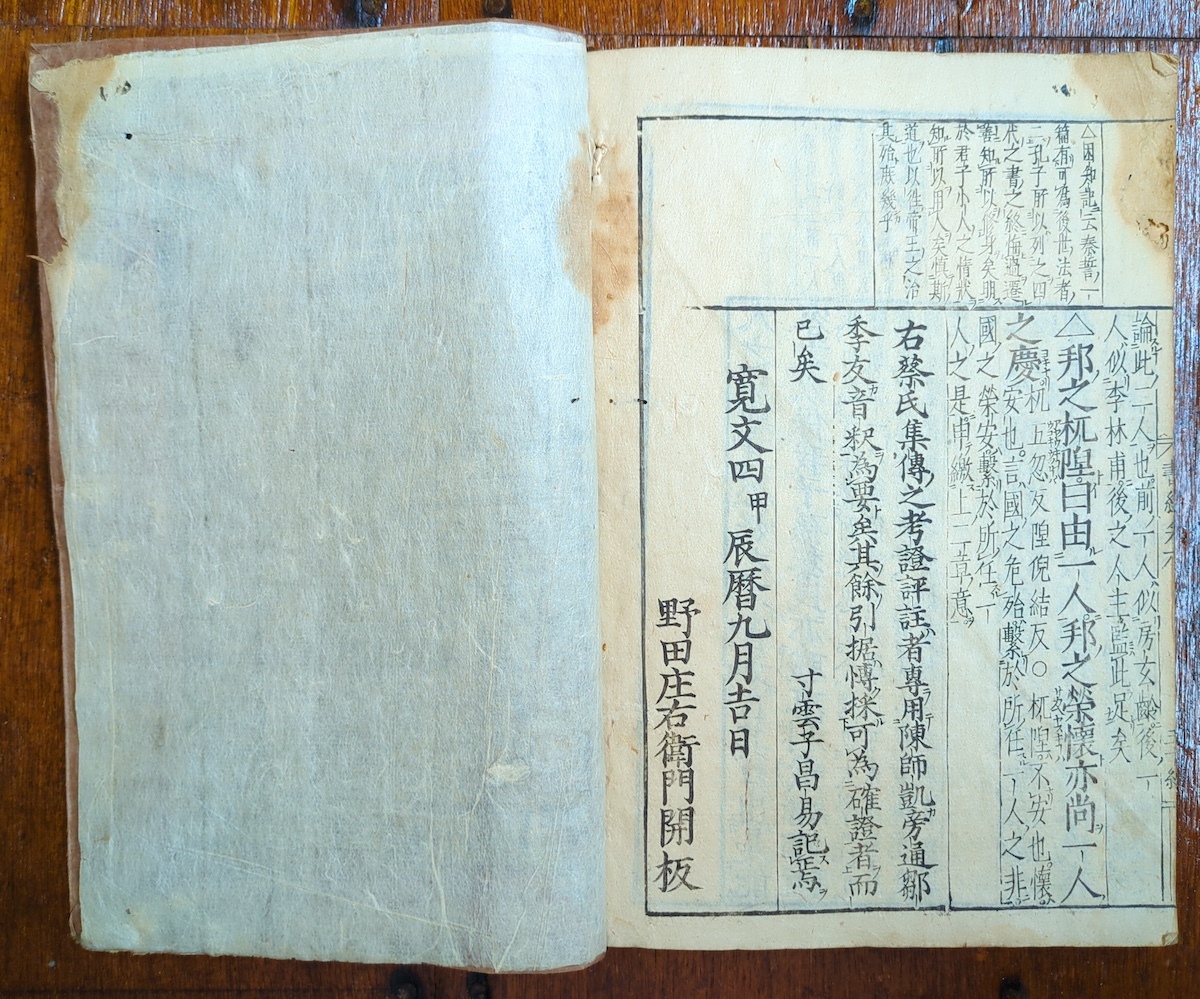 △困知記云秦誓一
篇有可為後世法者
二孔子所以列之四
代之書之終悔過遷
善知所以修身矣明
於君子小人之情狀
知所以用人矣慎斯
道也以往帝王之治
其殆庶幾乎
論此二人也前一人似房玄齡後一
人似李林甫後之人主監此足矣
△邦之杌隉曰由一人邦之榮懷亦尚一人
之慶杌五忽反隉倪結反○杌隉不安也懷
安也言國之危殆繫於所任一人之非
國之榮安繫於所任一
人之是申繳上二章意
右蔡氏集傳之考證評註者專用陳師凱旁通鄒
季友音釈為要矣其餘引据博採可為確證者而
已矣
寸雲子昌易記焉
寛文四甲辰暦九月吉日
野田庄右衛門開板